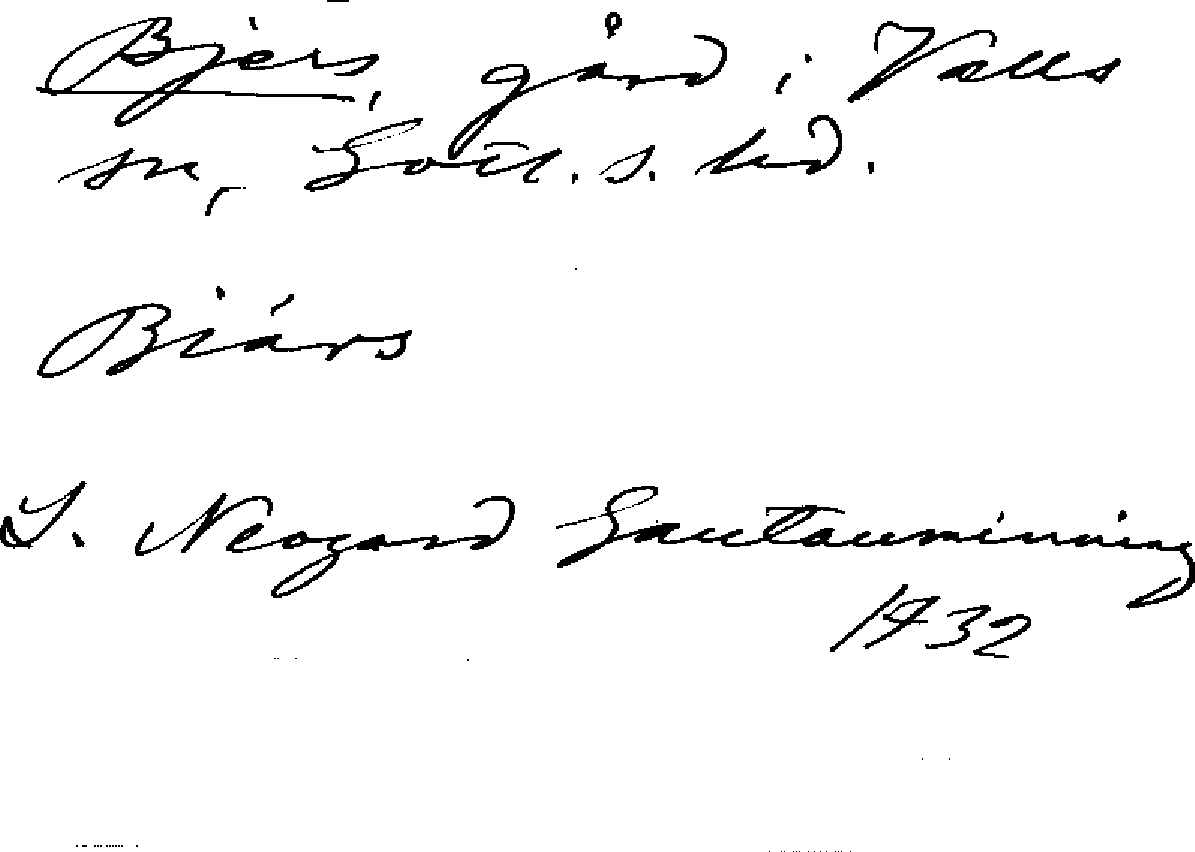 Bjers, gård i Valls
sn, Gotl. s. hd.
Biárs
L. Neogard Gautauminning
1732